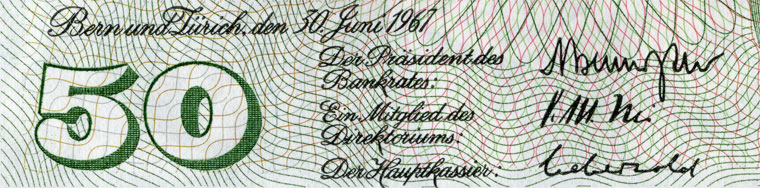 Bern und Zürich, den 30. Juni 1967
50
Der Präsident des
Bankrates:
Ein Mitglied des
Direktoriums:
Der Hauptkassier: